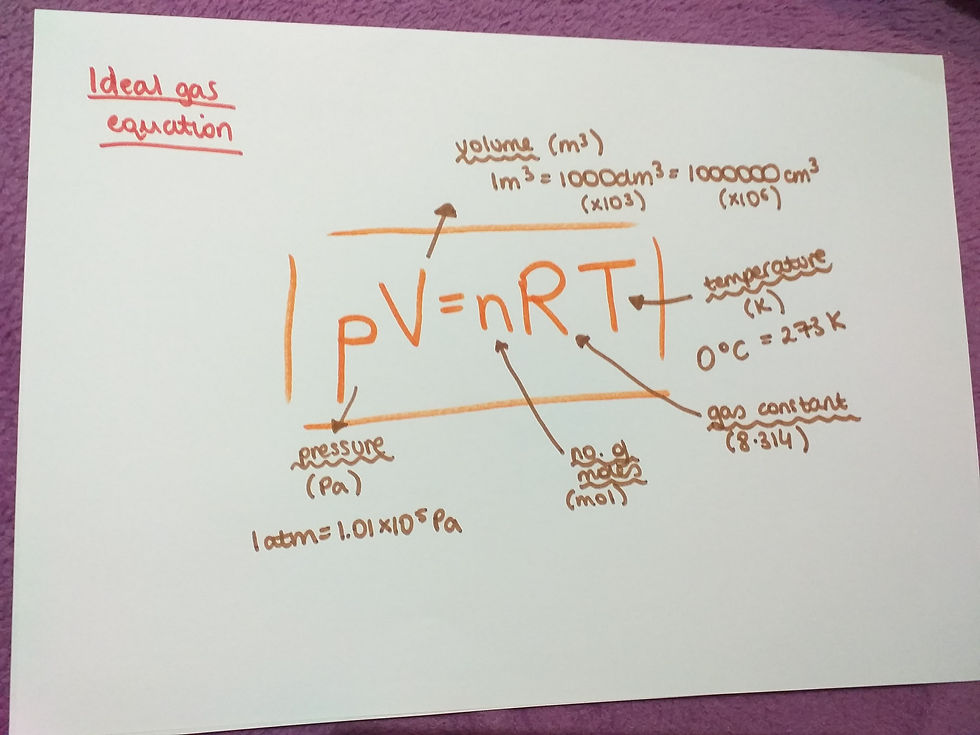 Ideal gas
equation
volume (m³)
1m³ = 1000dm³ = 1000000 cm³
(x10³) (x10⁶)
pV = nRT
temperature
(K)
0°C = 273 K
gas constant
(8.314)
pressure
(Pa)
1 atm = 1.01 x 10⁵ Pa
no. of
moles
(mol)